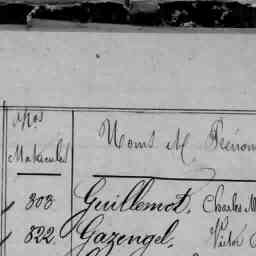 Nos
Matricules
Noms et Prénom
803 Guillemot, Charles M
822 Gazengel, Victor